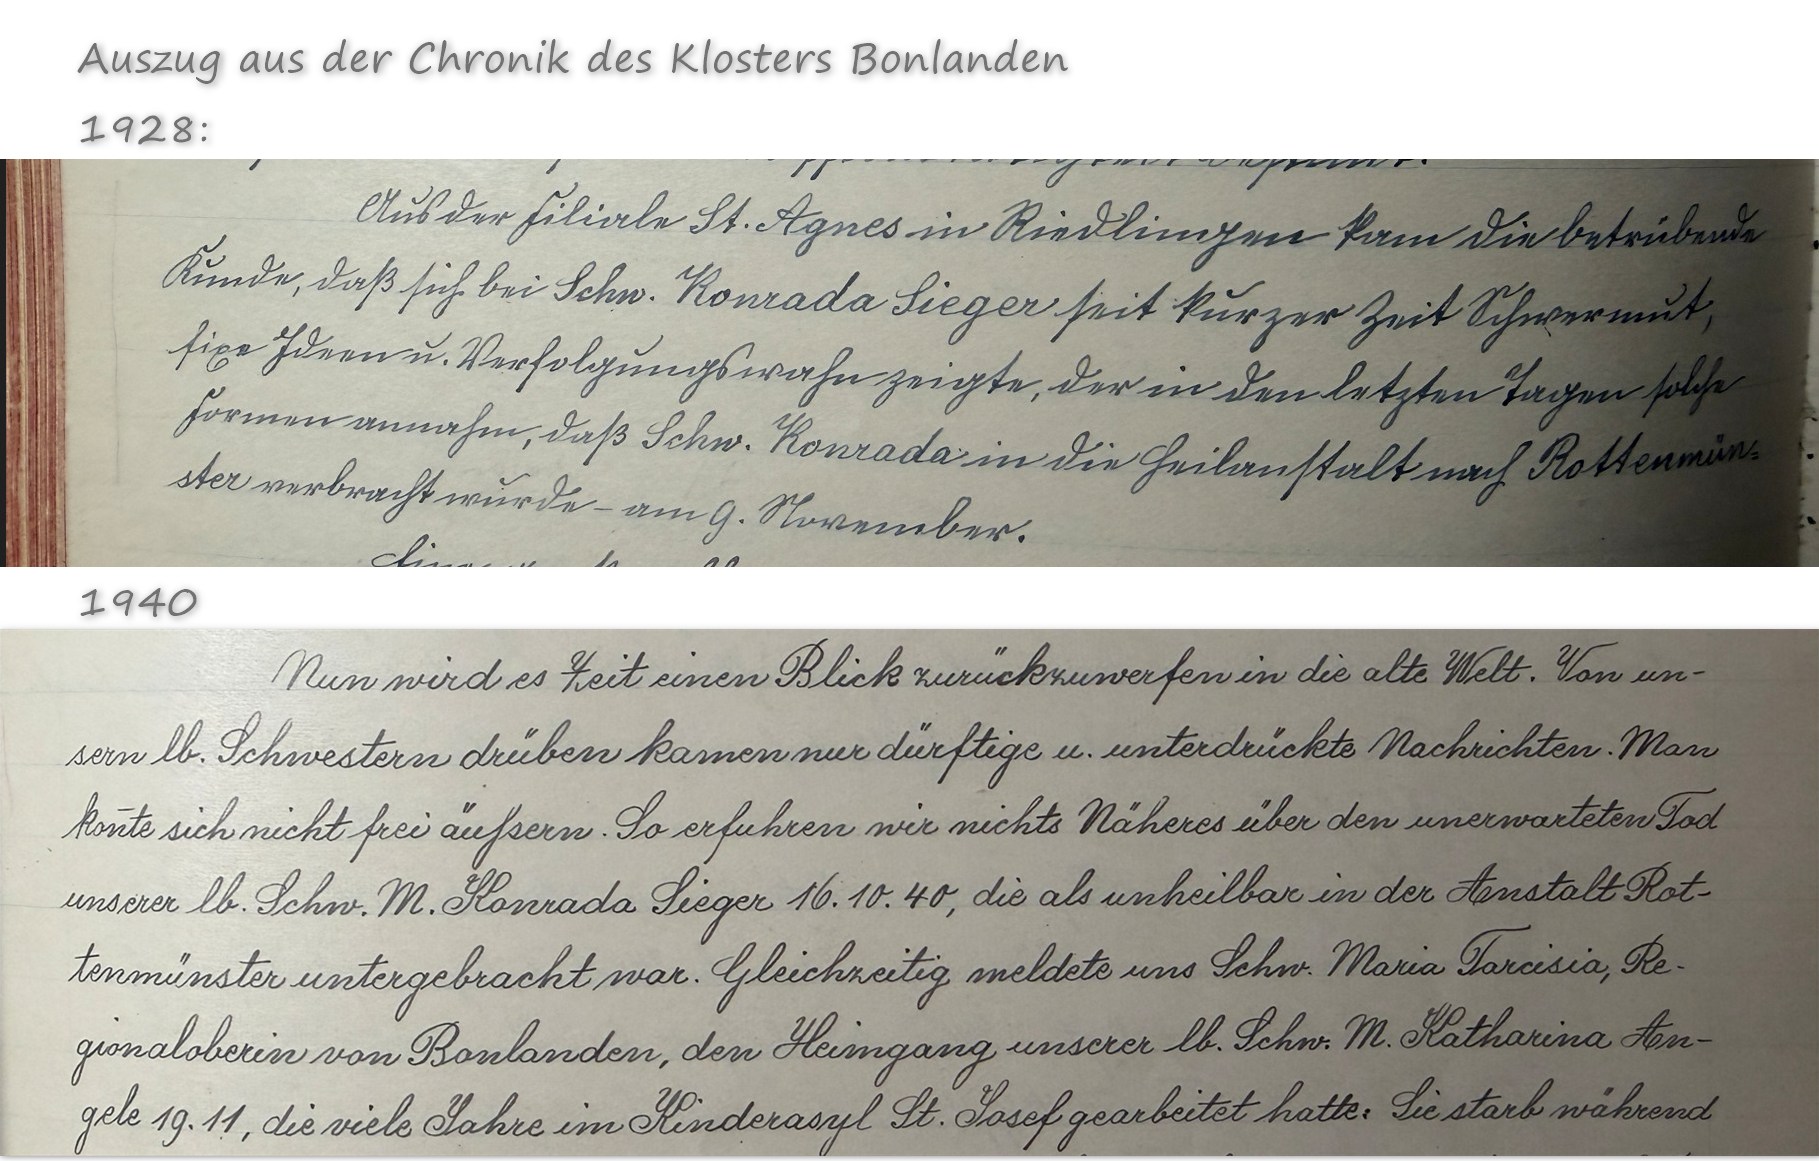 Auszug aus der Chronik des Klosters Bonlanden
1928:
Aus der Filiale St. Agnes in Riedlingen kam die betrübende
Kunde, daß sich bei Schw. Konrada Sieger seit kurzer Zeit Schwermut,
fixe Ideen u. Verfolgungswahn zeigte, der in den letzten Tagen solche
Formen annahm, daß Schw. Konrada in die Heilanstalt nach Rottenmün-
ster verbracht wurde - am 9. November.
1940
Nun wird es Zeit einen Blick zurückzuwerfen in die alte Welt. Von un-
sern lb. Schwestern drüben kamen nur dürftige u. unterdrückte Nachrichten. Man
kon̄te sich nicht frei äußern. So erfuhren wir nichts Näheres über den unerwarteten Tod
unserer lb. Schw. M. Konrada Sieger 16.10.40, die als unheilbar in der Anstalt Rot-
tenmünster untergebracht war. Gleichzeitig meldete uns Schw. Maria Tarcisia, Re-
gionaloberin von Bonlanden, den Heimgang unserer lb. Schw. M. Katharina An-
gele 19.11, die viele Jahre im Kinderasyl St. Josef gearbeitet hatte: Sie starb während